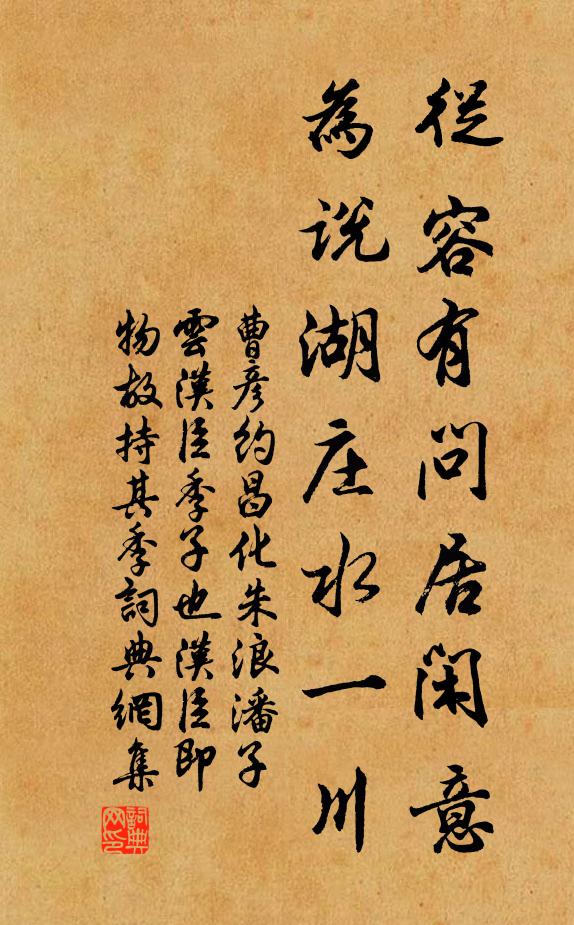 從容有問居閑意
為說湖庄水一川
曹彥約昌化朱浪潘子
雲漢臣季子也漢臣即
物故持其季詞典網集
詞典
网印